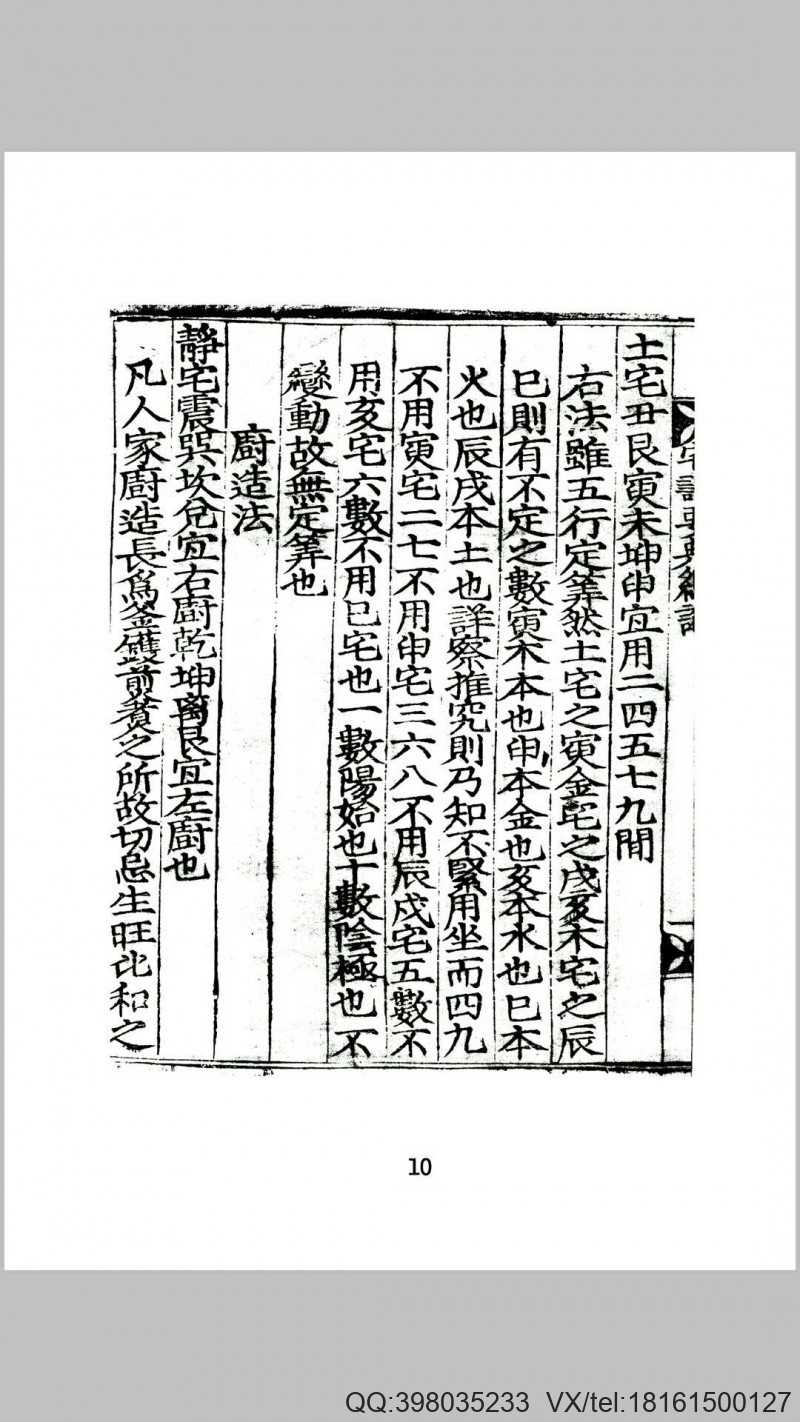 土宅丑艮寅未坤申宜用二四五七九間
右法雖五行定筭然土宅之寅金宅之戌亥木宅之辰
巳則有不定之數寅木本也申本金也亥本水也巳本
火也辰戌本土也詳察推究則乃知不緊用坐而四九
不用寅宅二七不用申宅三六八不用辰戌宅五數不
用亥宅六數不用巳宅也一數陽始也十數陰極也不
變動故無定筭也
廚造法
靜宅震巽坎兌宜右廚乾坤离艮宜左廚也
凡人家廚造長爲釜鑊煎煮之所故切忌生旺比和之
10
QQ:398035233 VX/tel:18161500127